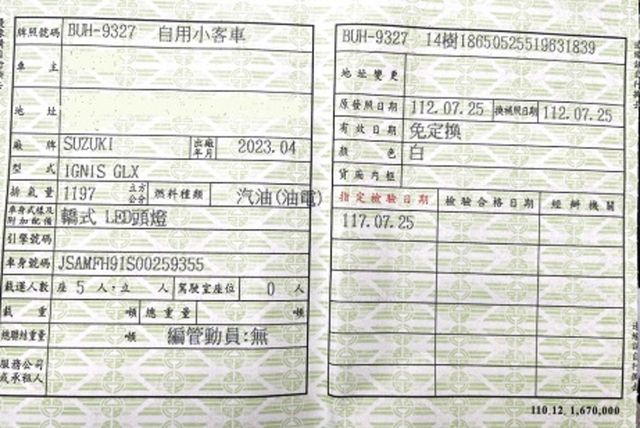 牌照號碼 BUH-9327 自用小客車
車主
地址
廠牌 SUZUKI 出廠年月 2023.04
型式 IGNIS GLX
排氣量 1197 立方公分 燃料種類 汽油(油電)
車身式樣及附加配備 轎式 LED頭燈
引擎號碼
車身號碼 JSAMFH91S00259355
載運人數 座 5 人,立 人 駕駛室座位 0 人
載重 噸 總重量 噸
總聯結重量 噸 編管動員:無
服務公司或承租人
BUH-9327 14樹18650525519631839
地址變更
原發照日期 112.07.25 換補照日期 112.07.25
有效日期 免定換
顏色 白
貨廂內框
指定檢驗日期 檢驗合格日期 經辦機關
117.07.25
110.12. 1,670,000